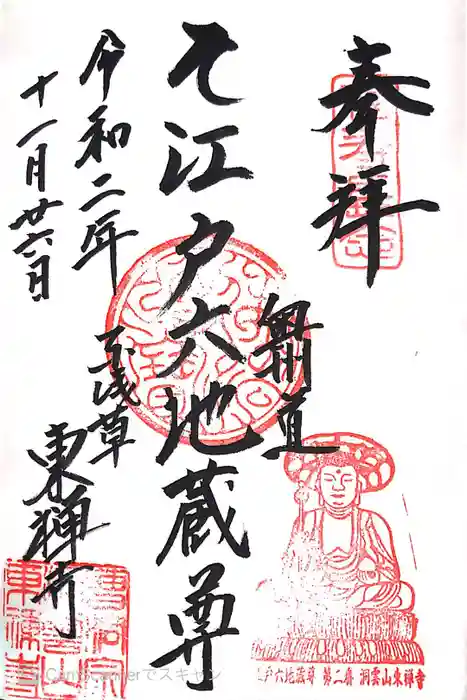 奉拝
奥州道
江戸六地蔵尊
令和二年
十一月廿六日
浅草
東禅寺
江戸六地蔵尊 第二番 洞雲山東禅寺
曹洞宗
洞雲山
東禅寺
CamScannerでスキャン